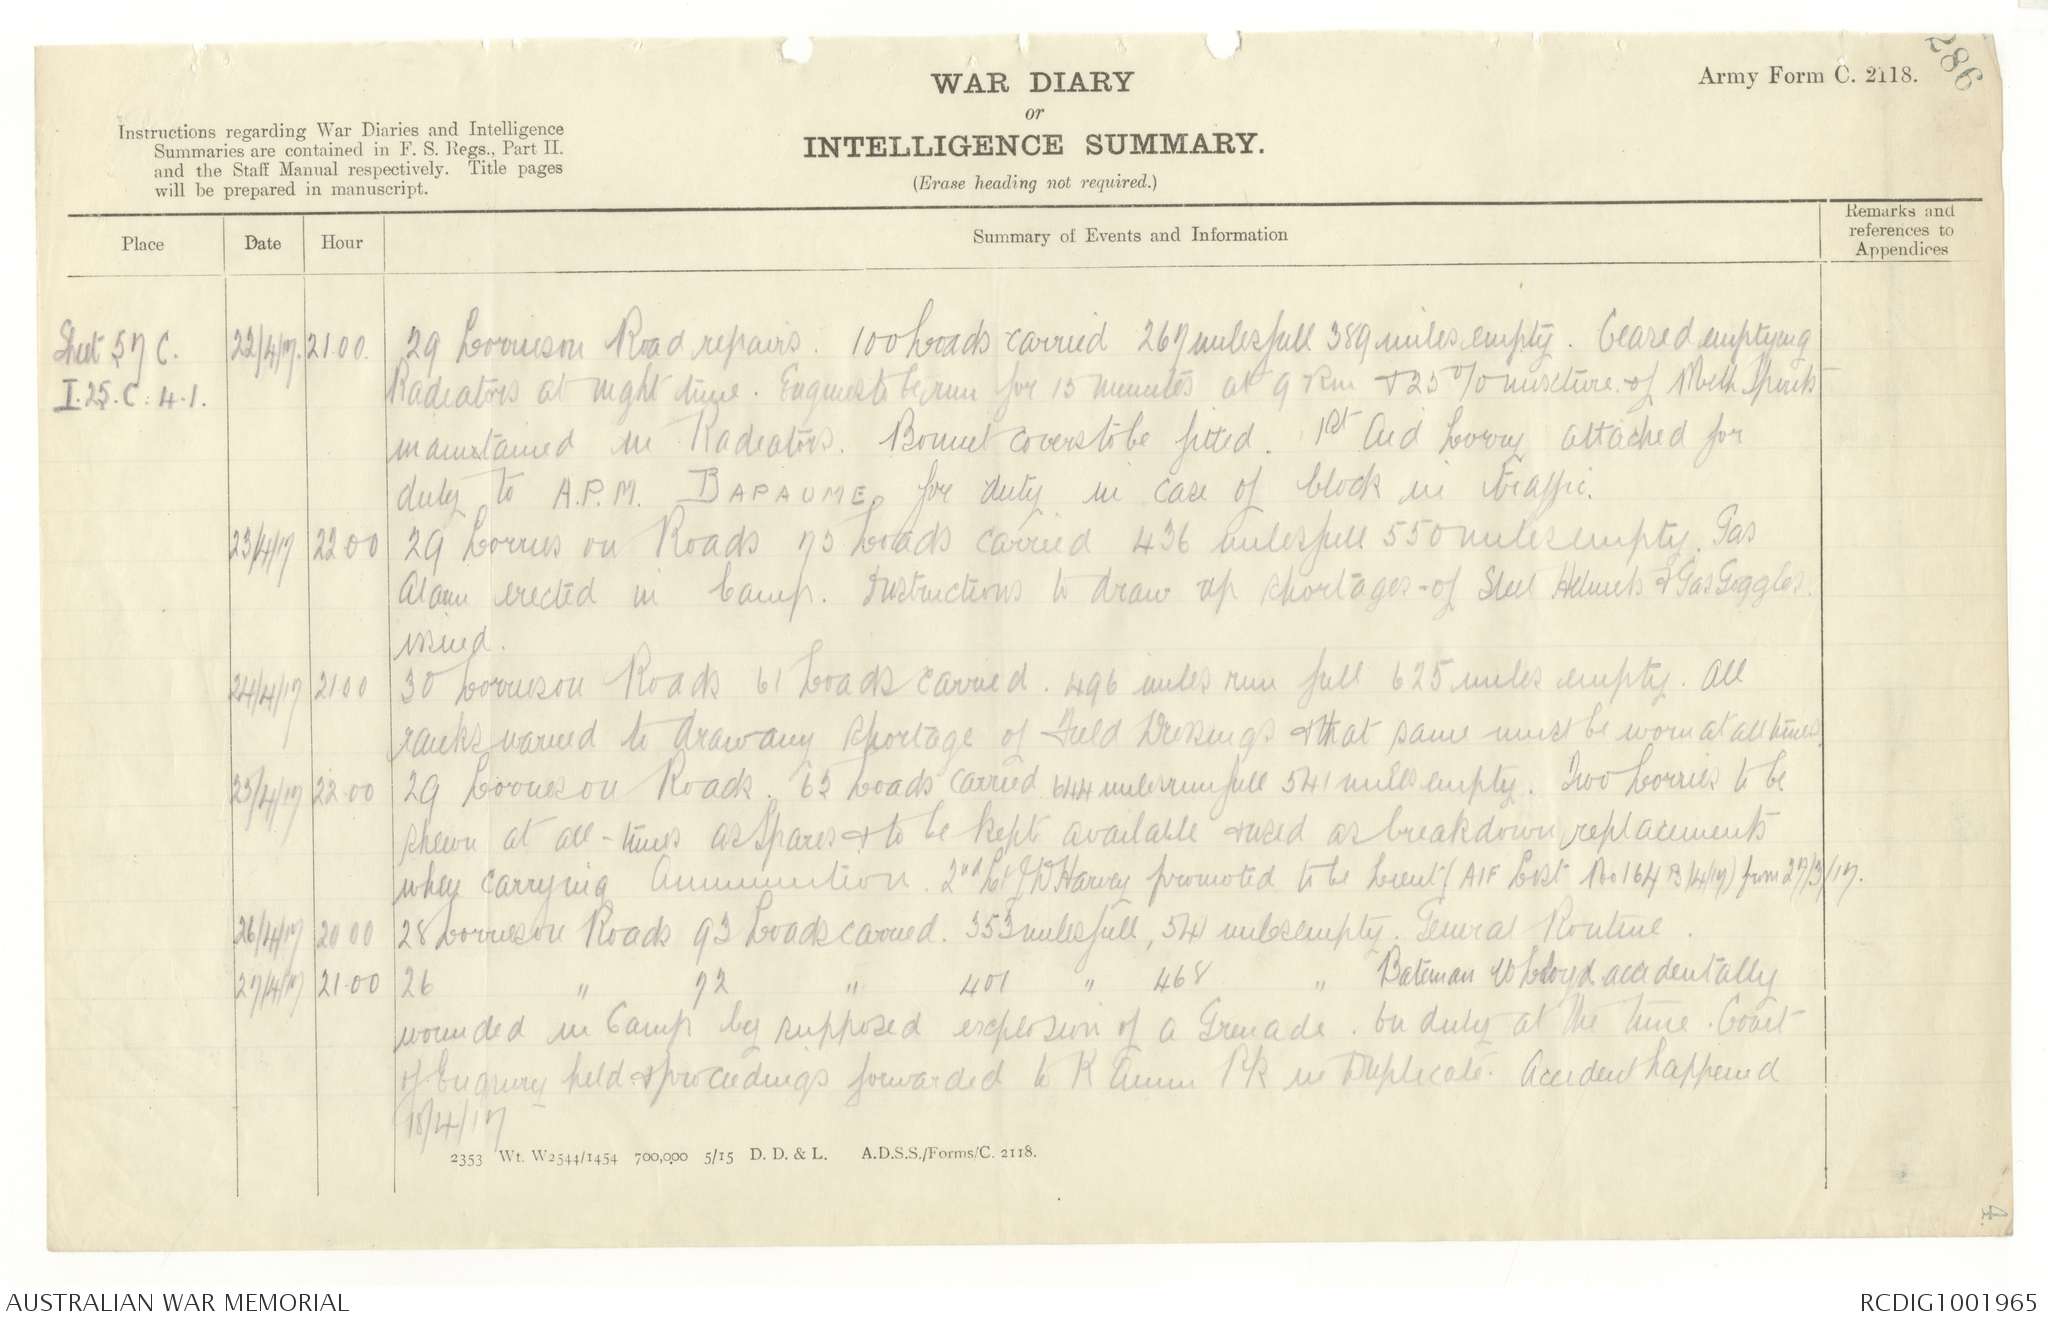 286
Army Form C. 2118.
WAR DIARY
or
INTELLIGENCE SUMMARY.
(Erase heading not required.)
Instructions regarding War Diaries and Intelligence
Summaries are contained in F. S. Regs., Part II.
and the Staff Manual respectively. Title pages
will be prepared in manuscript.
Place Date Hour Summary of Events and Information Remarks and references to Appendices
Sheet 57 C. 22/4/17. 21.00. 29 Lorries on Road repairs. 100 Loads carried 267 miles full 389 miles empty. Ceased emptying
I.25.C.4.1. Radiators at night time. Engines to be run for 15 minutes at 9 & 25% mixture of Meth Spirits
maintained in Radiators. Bonnet covers to be fitted. 1st Aid Lorry attached for
duty to A.P.M. BAPAUME, for duty in case of block in Traffic.
23/4/17 22.00 29 Lorries on Roads 73 Loads carried 436 miles full 550 miles empty. Gas
Alarm erected in Camp. Instructions to draw up shortages of Steel Helmets & Gas Goggles.
issued.
24/4/17 21.00 30 Lorries on Roads 61 Loads carried. 496 miles run full 625 miles empty. All
ranks warned to draw any shortage of Field Dressings & that same must be worn at all times.
25/4/17 22.00 29 Lorries on Roads. 63 Loads carried 644 miles run full 541 miles empty. Two Lorries to be
shewn at all-times as Spares & to be kept available & used as breakdown replacements
when carrying Ammunition. 2nd Lt J D Harvey promoted to be Lieut (AIF List No 164 B/4/17) from 27/3/17.
26/4/17 20.00 28 Lorries on Roads 93 Loads carried. 353 miles full, 541 miles empty. General Routine.
27/4/17 21.00 26 " 72 " 401 " 468 " Bateman W Lloyd accidentally
wounded in Camp by supposed explosion of a Grenade. On duty at the time. Court
of Enquiry held & proceedings forwarded to K Amm Pk in Duplicate. Accident happened
18/4/17
2353 Wt. W2544/1454 700,000 5/15 D. D. & L. A.D.S.S./Forms/C. 2118.
4.
AUSTRALIAN WAR MEMORIAL
RCDIG1001965